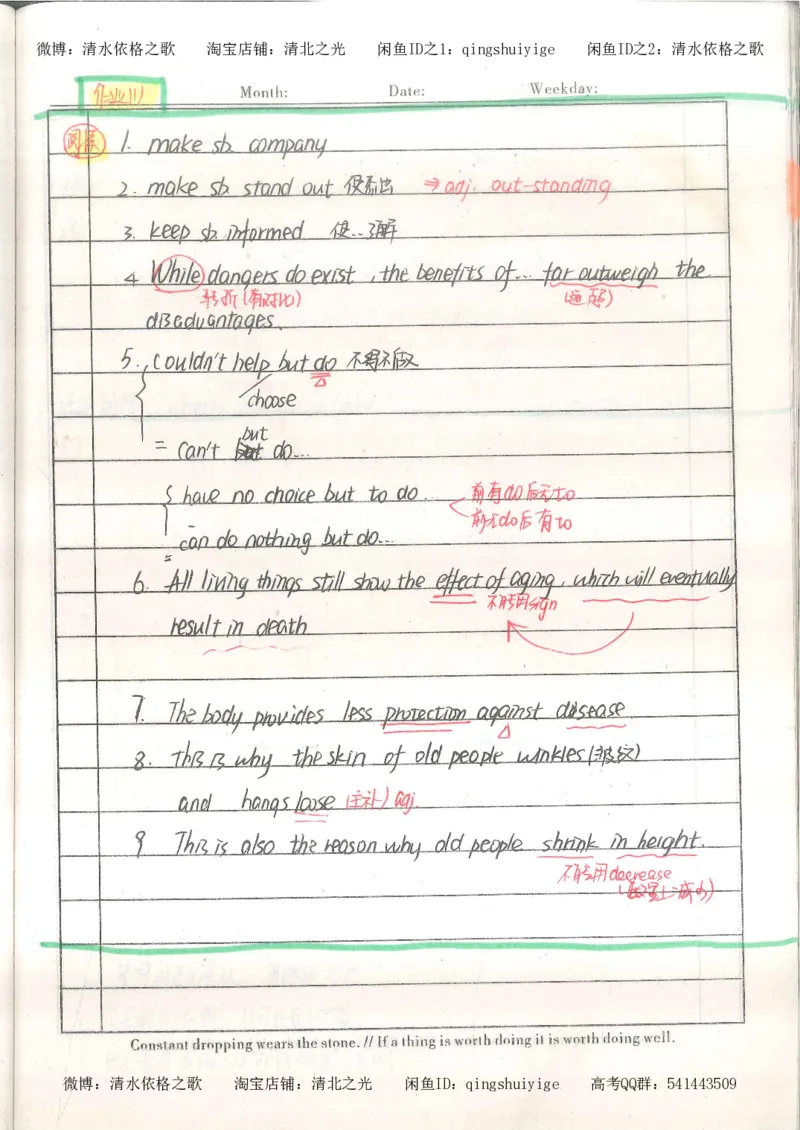 微博：清水依格之歌 淘宝店铺：清北之光 闲鱼ID之1：qingshuiyige 闲鱼ID之2：清水依格之歌
Month: Date: Weekday:
1. make sb company
2. make sb stand out 使突出 ⇒ adj. out-standing
3. keep sb informed 使…了解
4 While dangers do exist, the benefits of... far outweigh the
转折(有对比) (远超)
disadvantages.
5. couldn't help but do 不得不做
choose
but
= can't do...
have no choice but to do... 前有do后无to
前无do后有to
= can do nothing but do...
6. All living things still show the effect of aging, which will eventually
不能用sign
result in death
7. The body provides less protection against disease
8. This is why the skin of old people winkles (皱纹)
and hangs loose (主补) adj.
9 This is also the reason why old people shrink in height.
不能用decrease
(数量上减少)
Constant dropping wears the stone. // If a thing is worth doing it is worth doing well.
微博：清水依格之歌 淘宝店铺：清北之光 闲鱼ID：qingshuiyige 高考QQ群：541443509